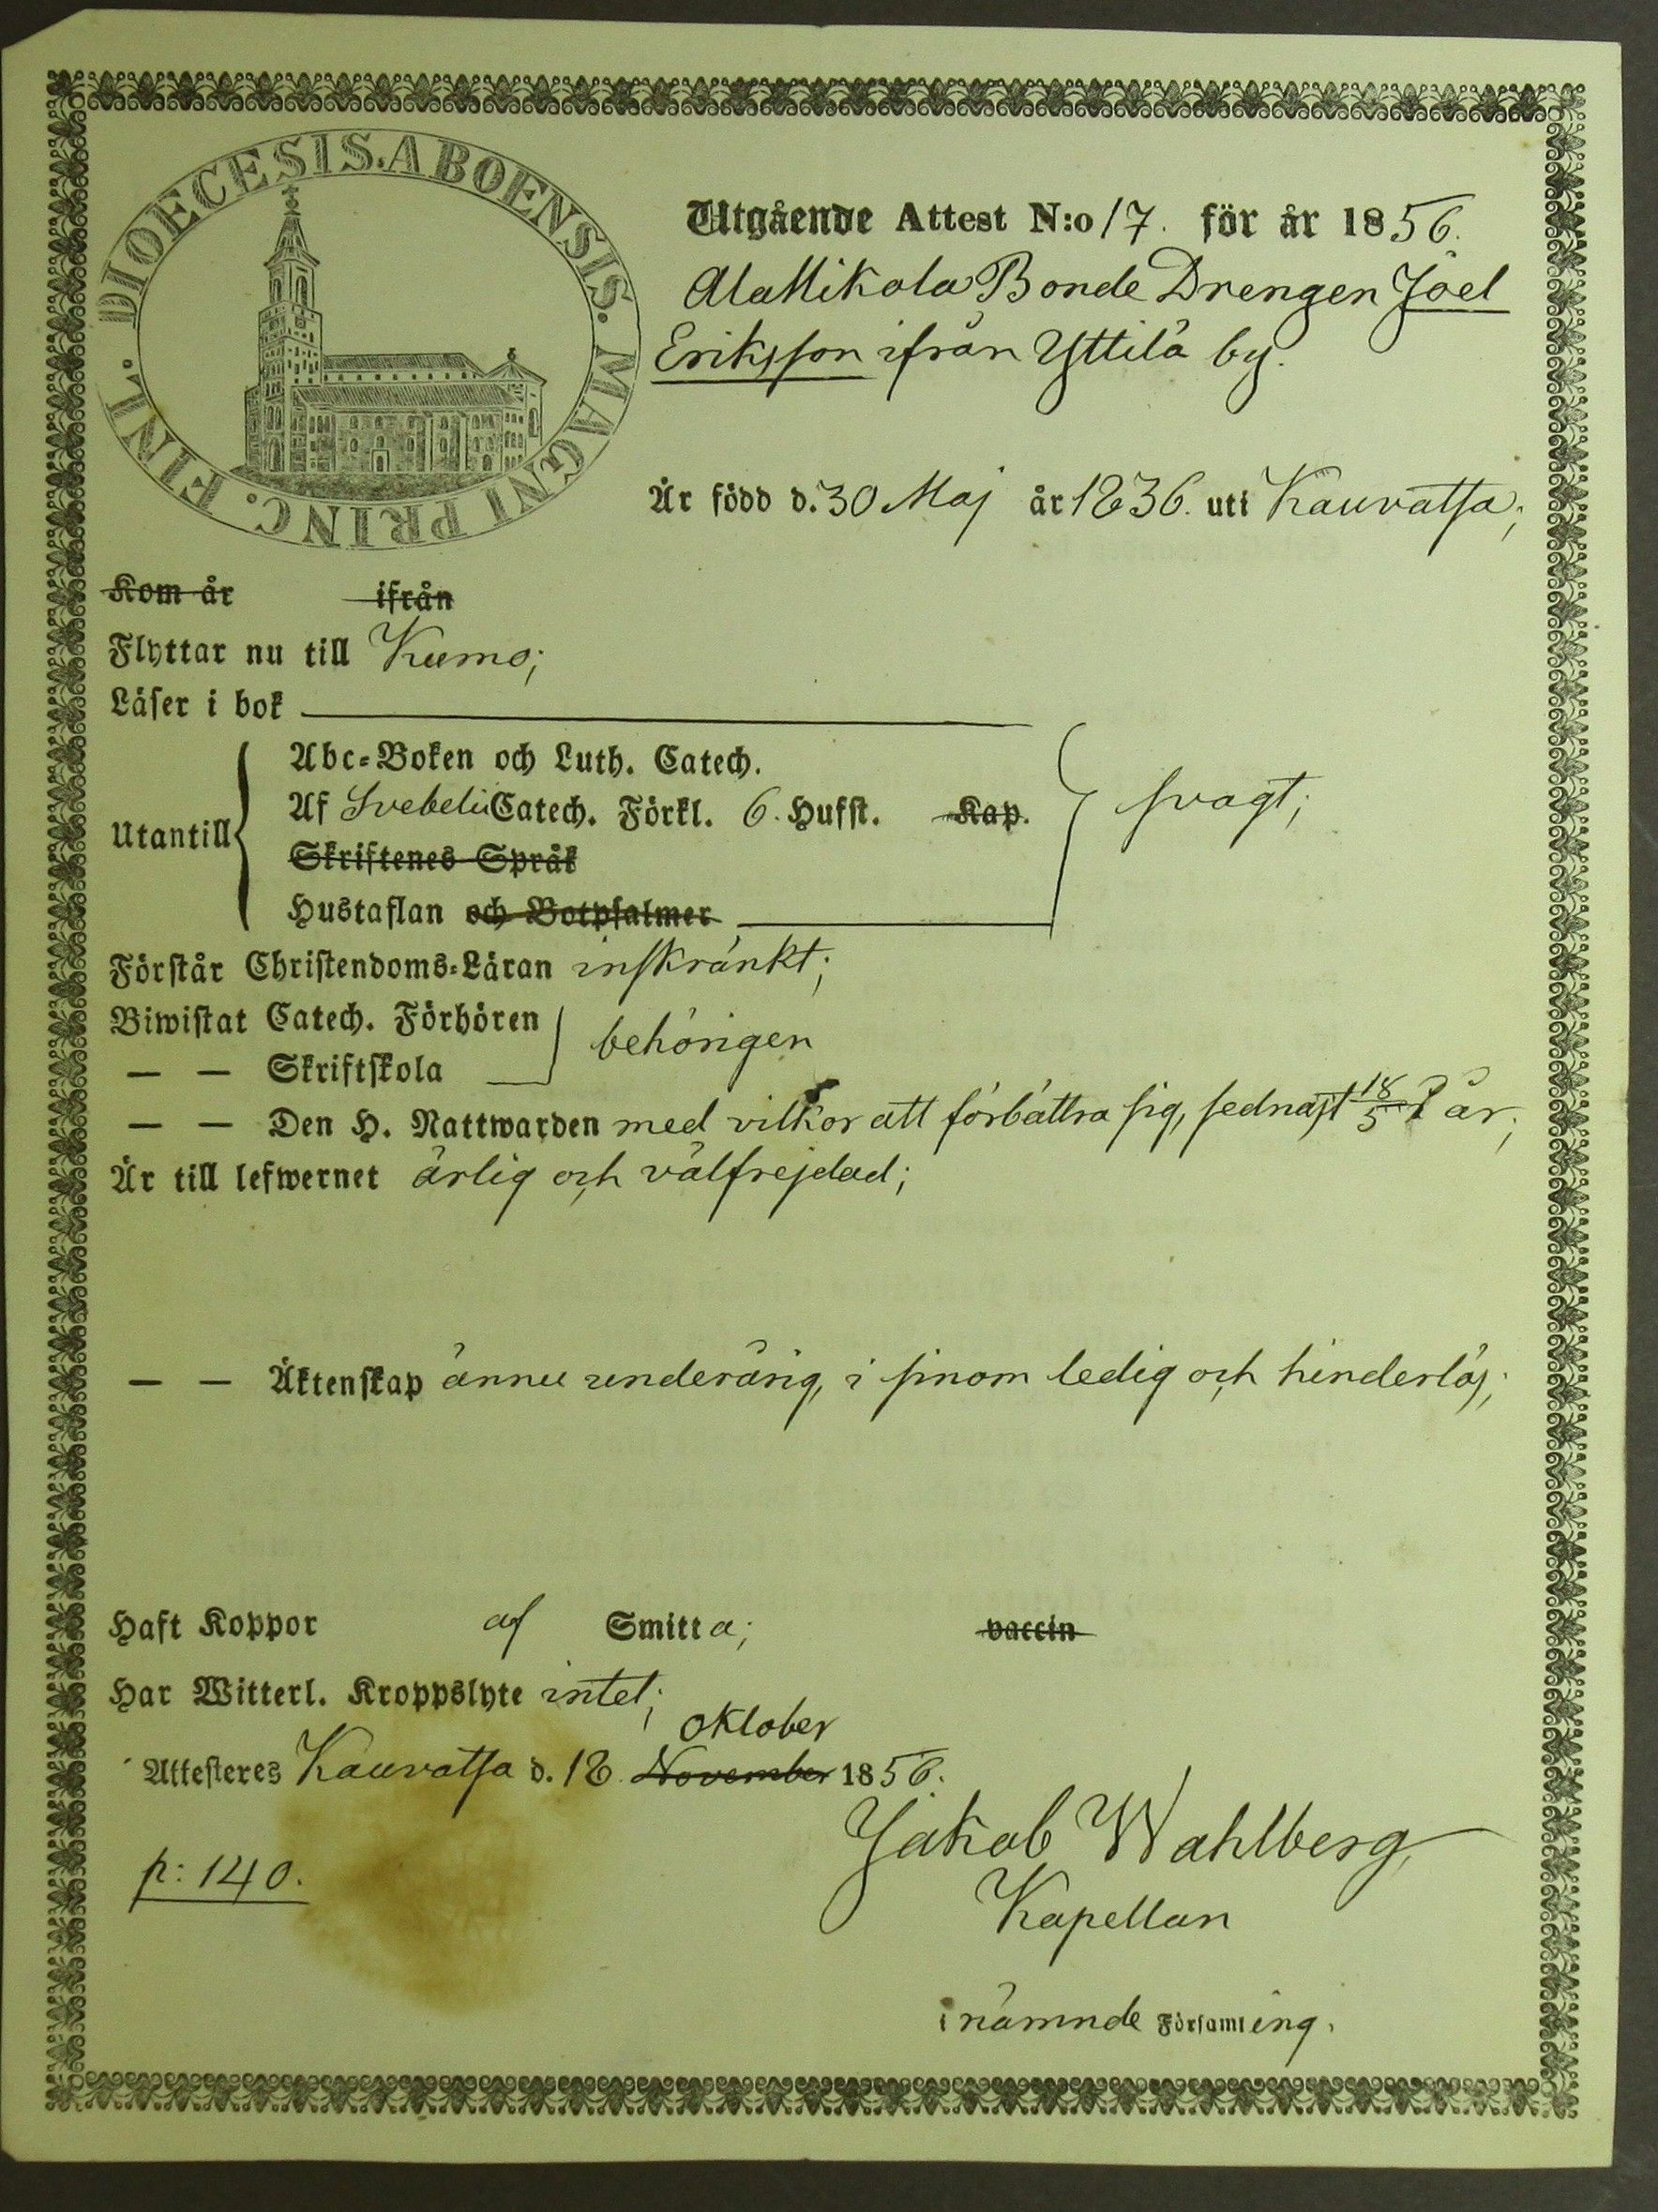 DIOECESIS.ABOENSIS. MAGNI PRINC. FINL.
Utgående Attest N:o 17. för år 1856.
AlaMikola Bonde Drengen Joel
Eriksson ifrån Yttilä by.
Är född d. 30 Maj år 1836. uti Kauvatsa;
Kom år ifrån
Flyttar nu till Kumo;
Läser i bok
Abc-Boken och Luth. Catech.
Af Svebelii Catech. Förkl. 6. Hufst. Kap. svagt;
Utantill
Skriftenes Språk
Hustaflan och Botpsalmer
Förstår Christendoms-Läran inskränkt;
Biwistat Catech. Förhören behörigen
— — Skriftskola
— — Den H. Nattwarden med vilkor att förbättra sig, sednast 18/5 år;
Är till lefwernet ärlig och välfrejdad;
— — Äktenskap ännu underårig, i sinom ledig och hinderlös;
Haft Koppor af Smitta; vaccin
Har Witterl. Kroppslyte intet;
Oktober
Attesteres Kauvatsa d. 18. November 1856.
Jakob Wahlberg,
p: 140.
Kapellan
i nämnde Församling.